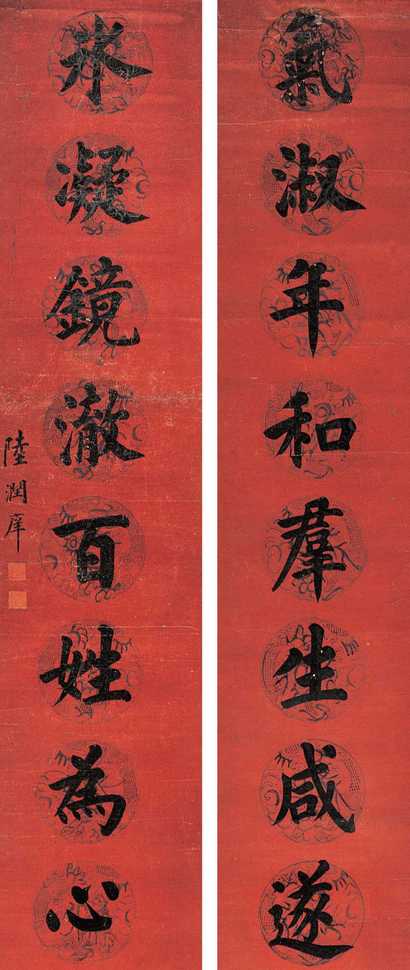 氣淑年和羣生咸遂
氷凝鏡澈百姓為心
陸潤庠